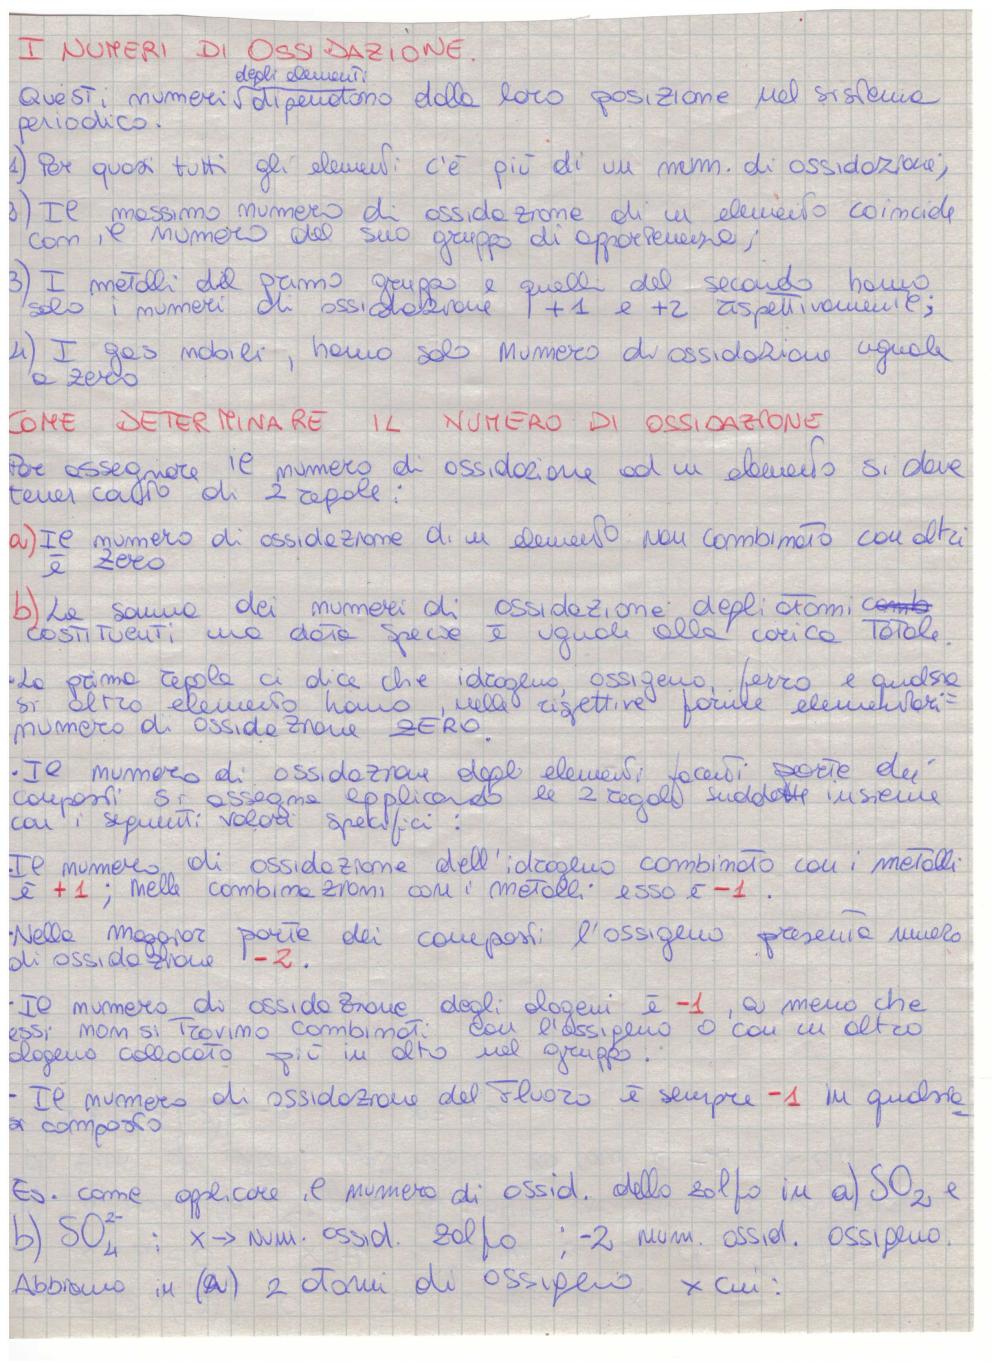 I NUMERI DI OSSIDAZIONE.
degli elementi
Questi numeri √dipendono dalla loro posizione nel sistema
periodico.
1) Per quasi tutti gli elementi c'è più di un num. di ossidazione;
2) Il massimo numero di ossidazione di un elemento coincide
con il numero del suo gruppo di appartenenza;
3) I metalli del primo gruppo e quelli del secondo hanno
solo i numeri di ossidazione +1 e +2 rispettivamente;
4) I gas nobili, hanno solo numero di ossidazione uguale
a zero
COME DETERMINARE IL NUMERO DI OSSIDAZIONE
Per assegnare il numero di ossidazione ad un elemento si deve
tener conto di 2 regole:
a) Il numero di ossidazione di un elemento non combinato con altri
è zero
b) La somma dei numeri di ossidazione degli atomi
costituenti una data specie è uguale alla carica totale.
- La prima regola ci dice che idrogeno, ossigeno, ferro e qualsia
si altro elemento hanno, nelle rispettive forme elementari=
numero di ossidazione ZERO.
- Il numero di ossidazione degli elementi facenti parte dei
composti si assegna applicando le 2 regole suddette insieme
con i seguenti valori specifici:
- Il numero di ossidazione dell'idrogeno combinato con i metalli
è +1; nelle combinazioni con i metalli esso è -1.
- Nella maggior parte dei composti l'ossigeno presenta numero
di ossidazione -2.
- Il numero di ossidazione degli alogeni è -1, a meno che
essi non si trovino combinati con l'ossigeno o con un altro
alogeno collocato più in alto nel gruppo.
- Il numero di ossidazione del fluoro è sempre -1 in qualsia
si composto
Es. come applicare il numero di ossid. dello zolfo in a) SO₂ e
b) SO₄²⁻ ; x → num. ossid. zolfo ; -2 num. ossid. ossigeno.
Abbiamo in (a) 2 atomi di ossigeno x cui: